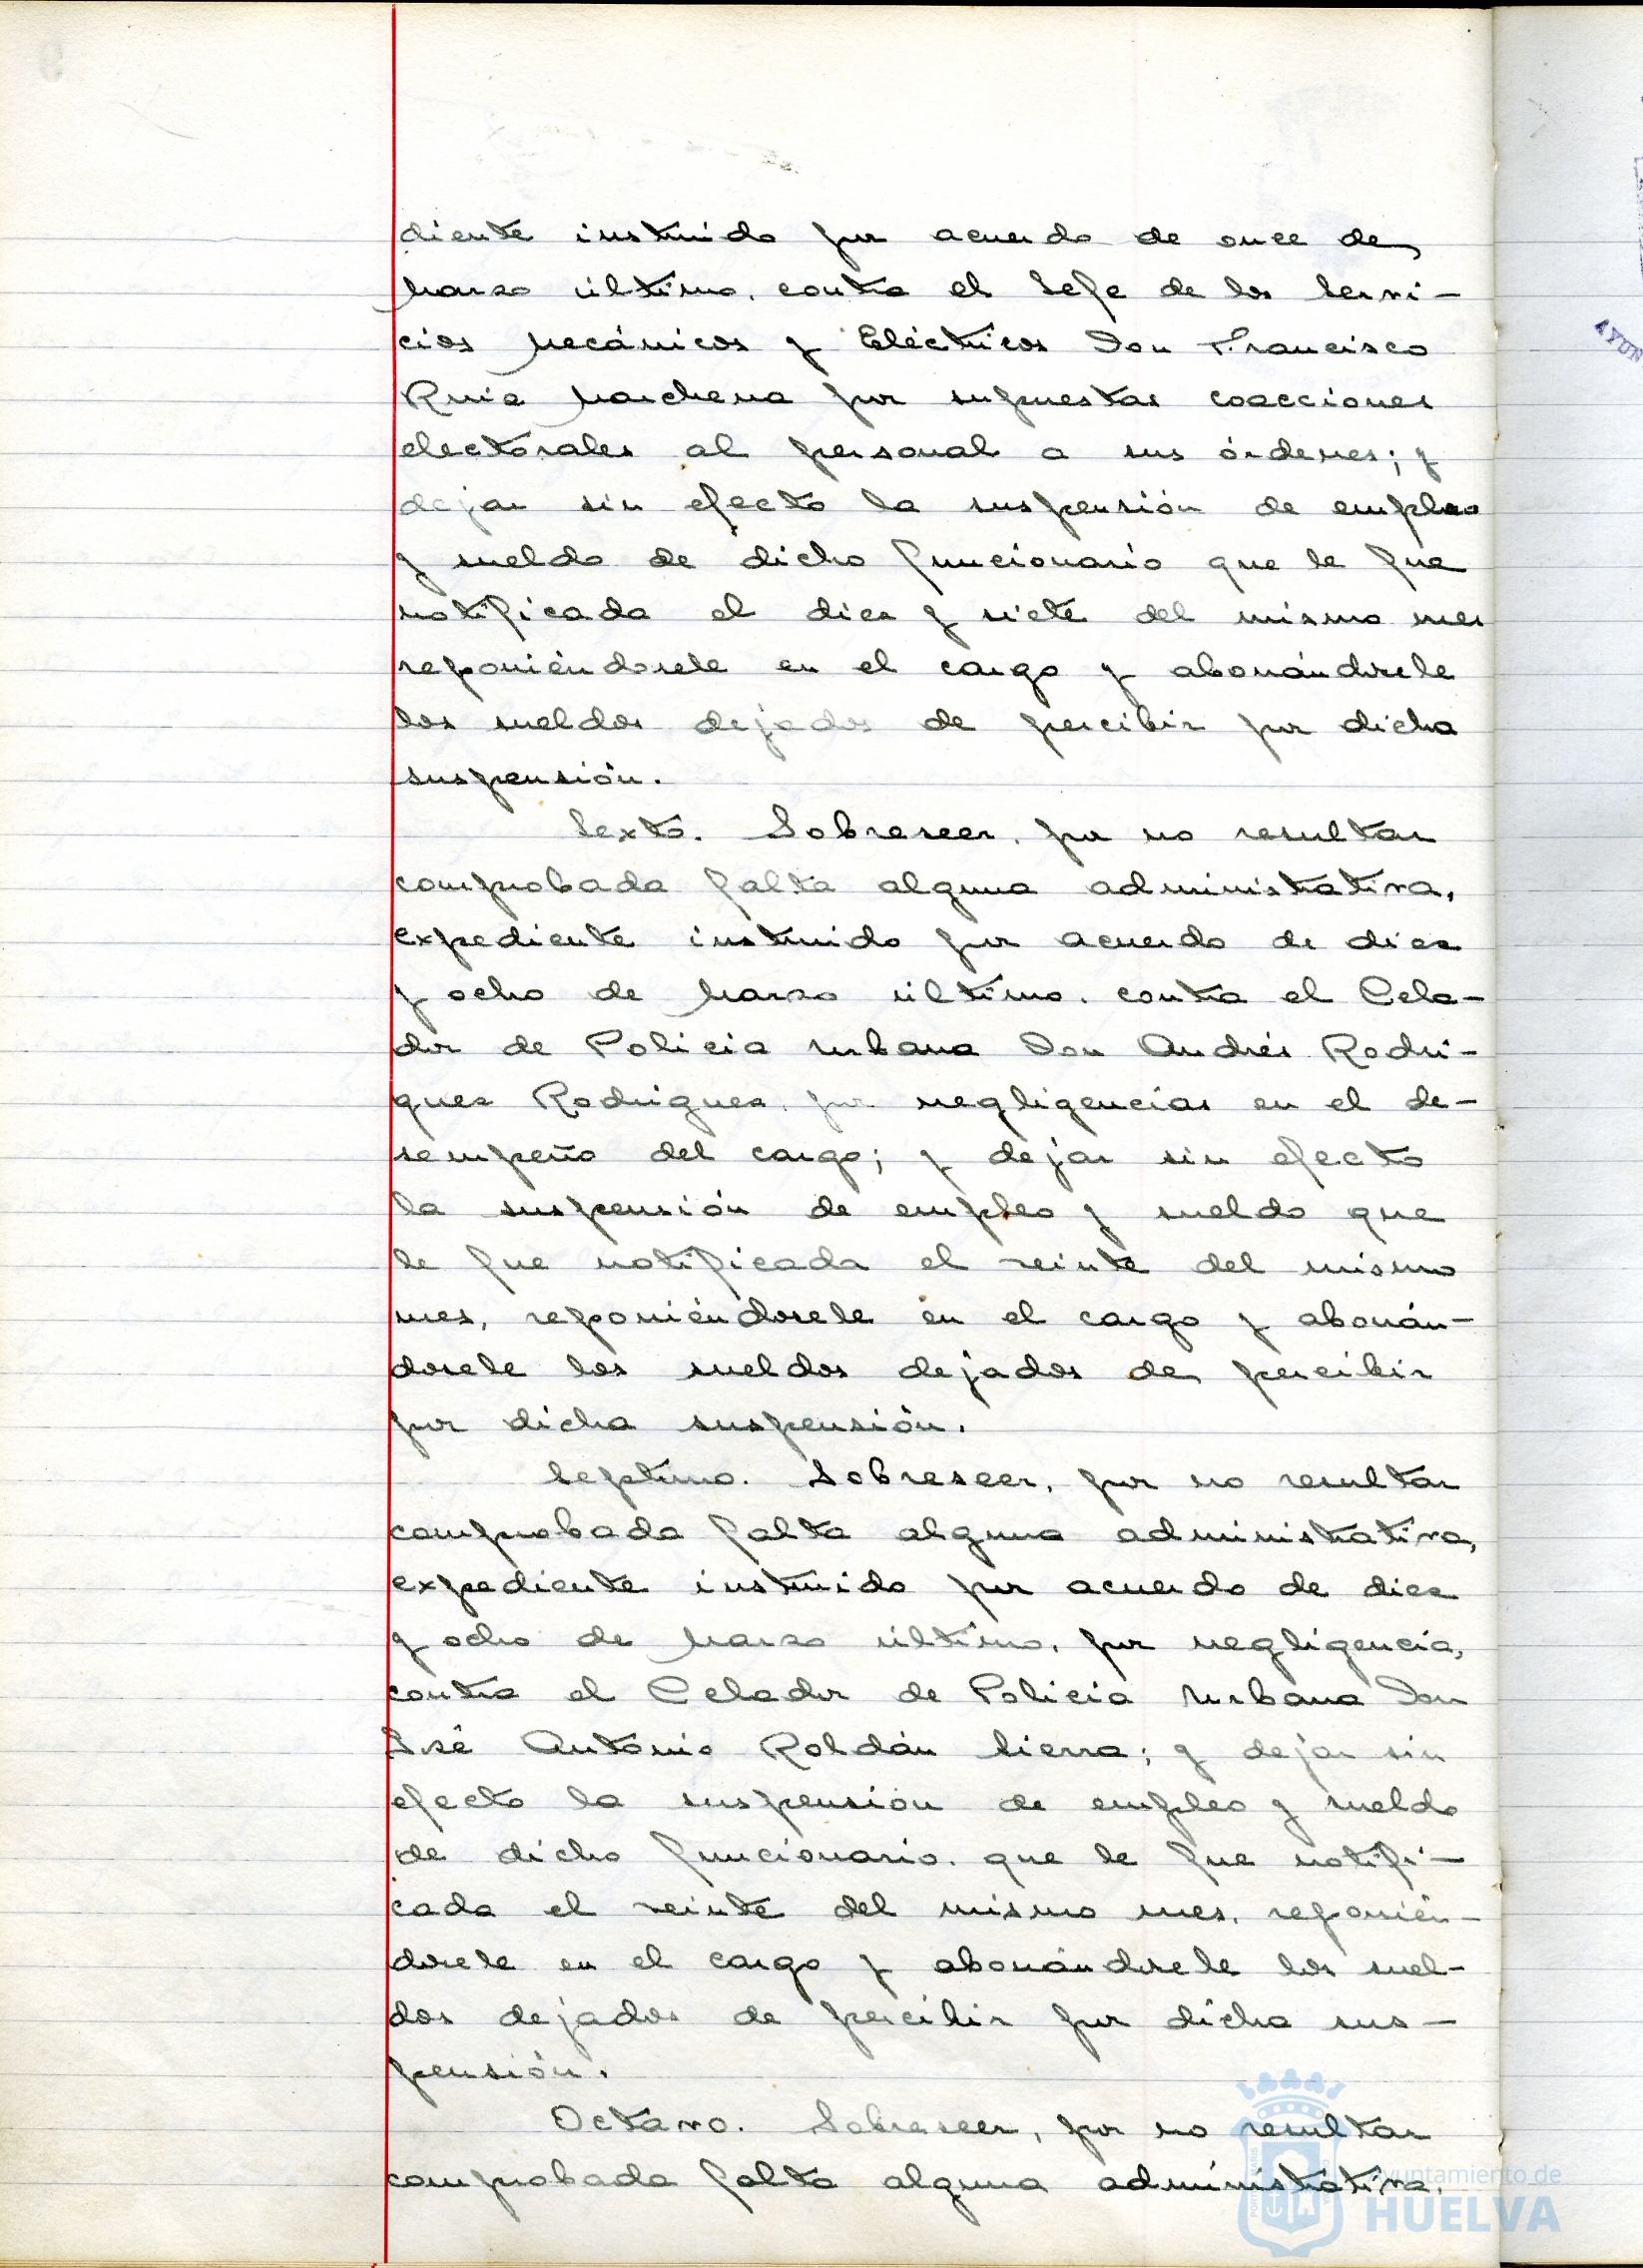 diente instruido por acuerdo de once de
Marzo último, contra el Jefe de los Servi-
cios Mecánicos y Eléctricos Don Francisco
Ruiz Marchena por supuestas coacciones
electorales al personal a sus órdenes; y
dejar sin efecto la suspensión de empleo
y sueldo de dicho funcionario que le fue
notificada el diez y siete del mismo mes
reponiéndosele en el cargo y abonándosele
los sueldos dejados de percibir por dicha
suspensión.
Sexto. Sobreseer, por no resultar
comprobada falta alguna administrativa,
expediente instruido por acuerdo de diez
y ocho de Marzo último, contra el Cela-
dor de Policía Urbana Don Andrés Rodrí-
guez Rodríguez, por negligencias en el de-
sempeño del cargo; y dejar sin efecto
la suspensión de empleo y sueldo que
le fue notificada el veinte del mismo
mes, reponiéndosele en el cargo y abonán-
dosele los sueldos dejados de percibir
por dicha suspensión.
Septimo. Sobreseer, por no resultar
comprobada falta alguna administrativa,
expediente instruido por acuerdo de diez
y ocho de Marzo último, por negligencia,
contra el Celador de Policía Urbana Don
José Antonio Roldán Sierra; y dejar sin
efecto la suspensión de empleo y sueldo
de dicho funcionario, que le fue notifi-
cada el veinte del mismo mes, reponién-
dosele en el cargo y abonándosele los suel-
dos dejados de percibir por dicha sus-
pensión.
Octavo. Sobreseer, por no resultar
comprobada falta alguna administrativa,
Ayuntamiento de
HUELVA
AYUN